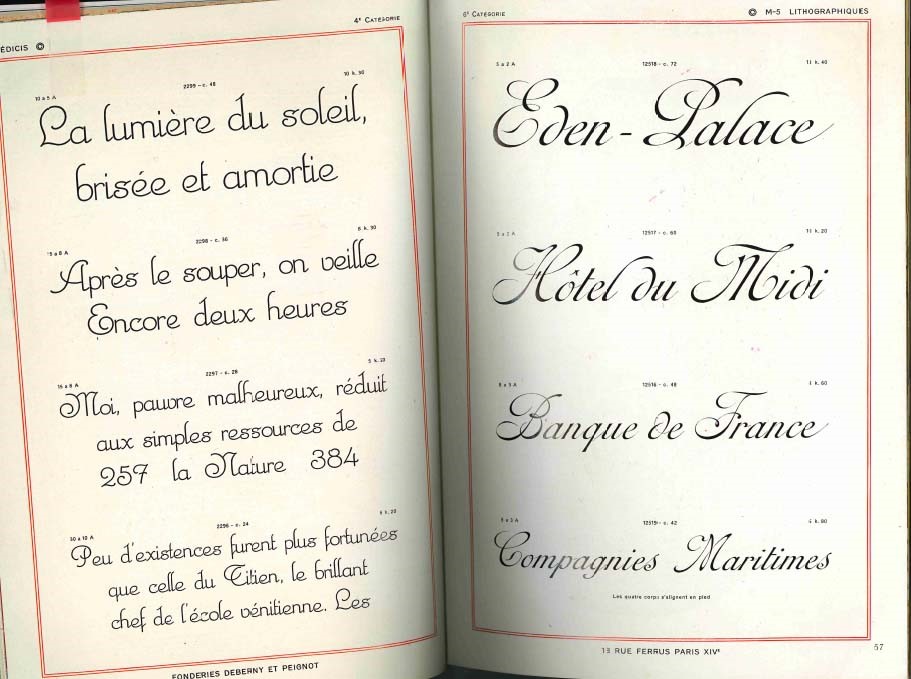 ÉDICIS ©
4e CATÉGORIE
10 a 5 A
2299 - c. 48
10 k. 50
La lumière du soleil,
brisée et amortie
15 a 8 A
2298 - c. 36
6 k. 30
Après le souper, on veille
Encore deux heures
16 a 8 A
2297 - c. 28
5 k. 20
Moi, pauvre malheureux, réduit
aux simples ressources de
257 la Nature 384
30 a 10 A
2296 - c. 24
5 k. 20
Peu d'existences furent plus fortunées
que celle du Titien, le brillant
chef de l'école vénitienne. Les
FONDERIES DEBERNY ET PEIGNOT
6e CATÉGORIE
© M-5 LITHOGRAPHIQUES
5 a 2 A
12518 - c. 72
11 k. 40
Eden - Palace
5 a 2 A
12517 - c. 60
11 k. 20
Hôtel du Midi
8 a 3 A
12516 - c. 48
k. 60
Banque de France
8 a 3 A
12515 - c. 42
k. 80
Compagnies Maritimes
Les quatre corps s'alignent en pied
18 RUE FERRUS PARIS XIVe
57